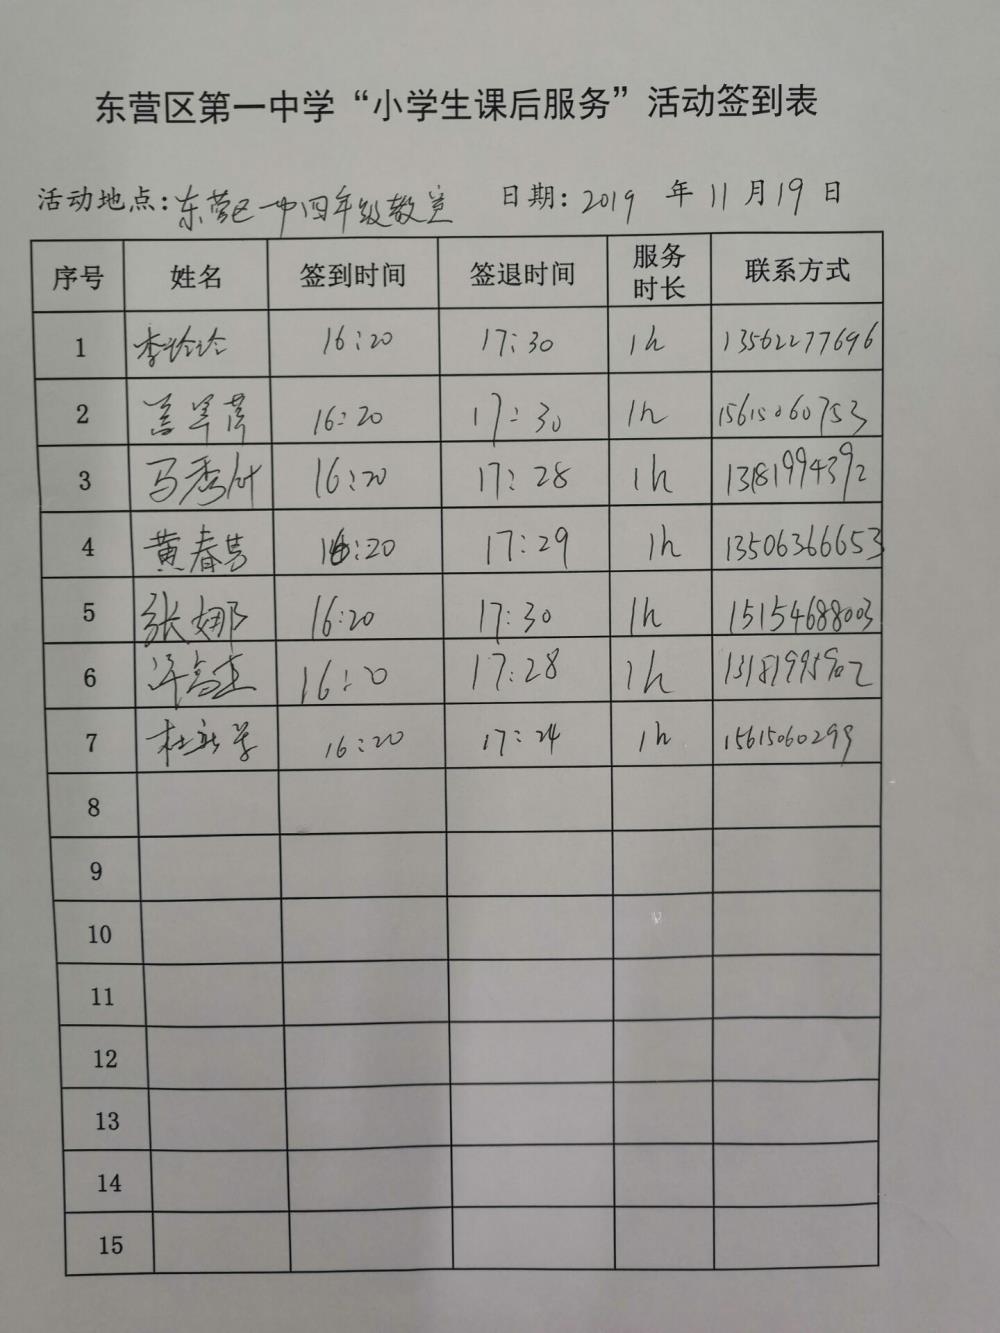 东营区第一中学“小学生课后服务”活动签到表
活动地点:东营区一中四年级教室 日期:2019 年 11 月 19 日
序号 姓名 签到时间 签退时间 服务时长 联系方式
1 李玲玲 16:20 17:30 1h 13562277696
2 16:20 17:30 1h 15615060753
3 马秀 16:20 17:28 1h 13181994392
4 黄春 16:20 17:29 1h 13506366653
5 张娜 16:20 17:30 1h 15154688003
6 16:20 17:28 1h
7 杜 16:20 17:24 1h 15615060299
8
9
10
11
12
13
14
15